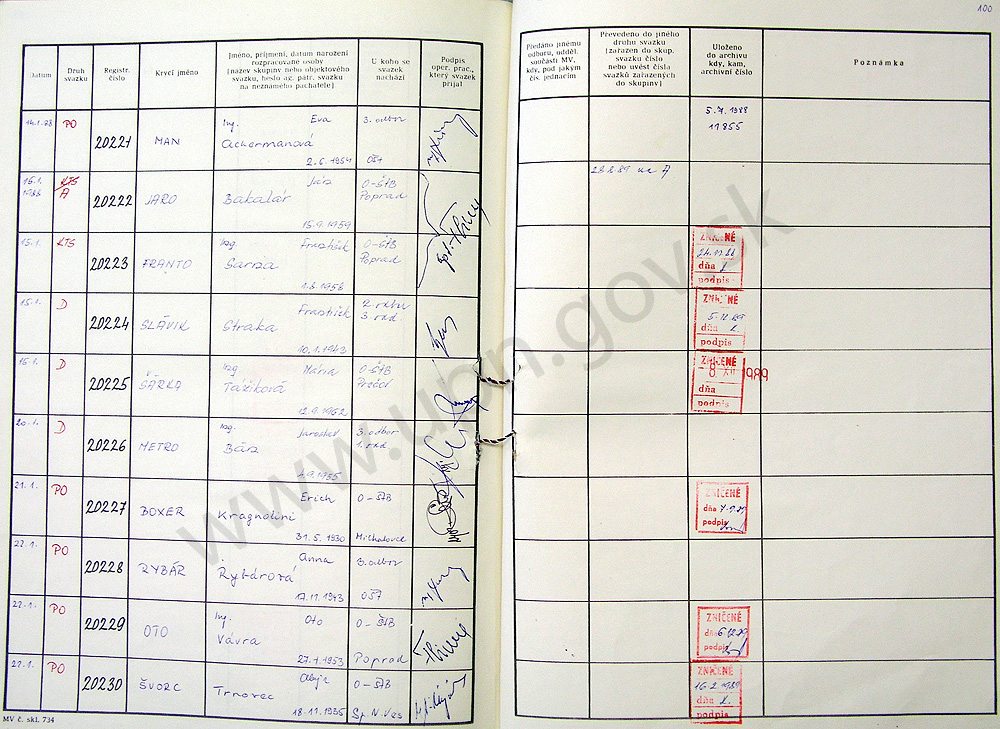 100
Datum
Druh svazku
Registr. číslo
Krycí jméno
Jméno, příjmení, datum narození
rozpracované osoby
(název skupiny nebo objektového
svazku, heslo ag. pátr. svazku
na neznámého pachatele)
U koho se
svazek
nachází
Podpis
oper. prac.,
který svazek
přijal
Předáno jinému
odboru, odděl.
součásti MV,
kdy, pod jakým
čís. jednacím
Převedeno do jiného
druhu svazku
(zařazen do skup.
svazku číslo
nebo uvést čísla
svazků zařazených
do skupiny)
Uloženo
do archivu
kdy, kam,
archivní číslo
Poznámka
14.1.88 PO 20221 MAN Ing. Eva
Achermanová
2.6.1954
3. odbor
OŠT
5.7.1988
11855
15.1.
1988
KTS
A
20222 JARO
Bakalár
15.9.1959
O-ŠtB
Poprad
15.1. KTS 20223 FRANTO Ing. František
1.8.1958
O-ŠtB
Poprad
ZNIČENÉ
dňa
podpis
15.1. D 20224 SLÁVIK František
Straka
10.1.1943
ZNIČENÉ
5.12.89
dňa
podpis
15.1. D 20225 ŠÁRKA Ing. Mária
12.9.1962
O-ŠtB
ZNIČENÉ
8 XII 1989
dňa
podpis
20.1. D 20226 METRO Ing. Jaroslav
4.9.1955
3. odbor
21.1. PO 20227 BOXER Erich
Kragnolini
31.5.1930
O-ŠtB
Michalovce
ZNIČENÉ
dňa
podpis
22.1. PO 20228 RYBÁR Anna
Rybárová
17.11.1943
3. odbor
OŠT
22.1. PO 20229 OTO Ing. Oto
Vávra
27.1.1953
O-ŠtB
Poprad
ZNIČENÉ
dňa 6.12.89
podpis
22.1. PO 20230 ŠVORC
Trnovec
18.11.1935
O-ŠtB
Sp. N. Ves
ZNIČENÉ
16.2.1989
dňa
podpis
MV č. skl. 734
www.upn.gov.sk